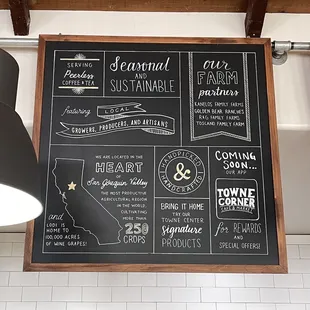 SERVING
Peerless
COFFEE & TEA
Seasonal
AND
SUSTAINABLE
featuring LOCAL
GROWERS, PRODUCERS, AND ARTISANS
our
FARM
partners
KANELOS FAMILY FARMS
GOLDEN BEAR RANCHES
R&G FAMILY FARMS
TOSLAND FAMILY FARM
and
LODI IS
HOME TO
100,000 ACRES
OF WINE GRAPES!
WE ARE LOCATED IN THE
HEART
OF
San Joaquin Valley
THE MOST PRODUCTIVE
AGRICULTURAL REGION
IN THE WORLD,
CULTIVATING
MORE THAN
250
CROPS
HANDPICKED
&
HANDCRAFTED
BRING IT HOME
TRY OUR
TOWNE CENTER
signature
PRODUCTS
COMING
SOON...
OUR APP
TOWNE
CORNER
CAFE & MARKET
for REWARDS
AND
SPECIAL OFFERS!